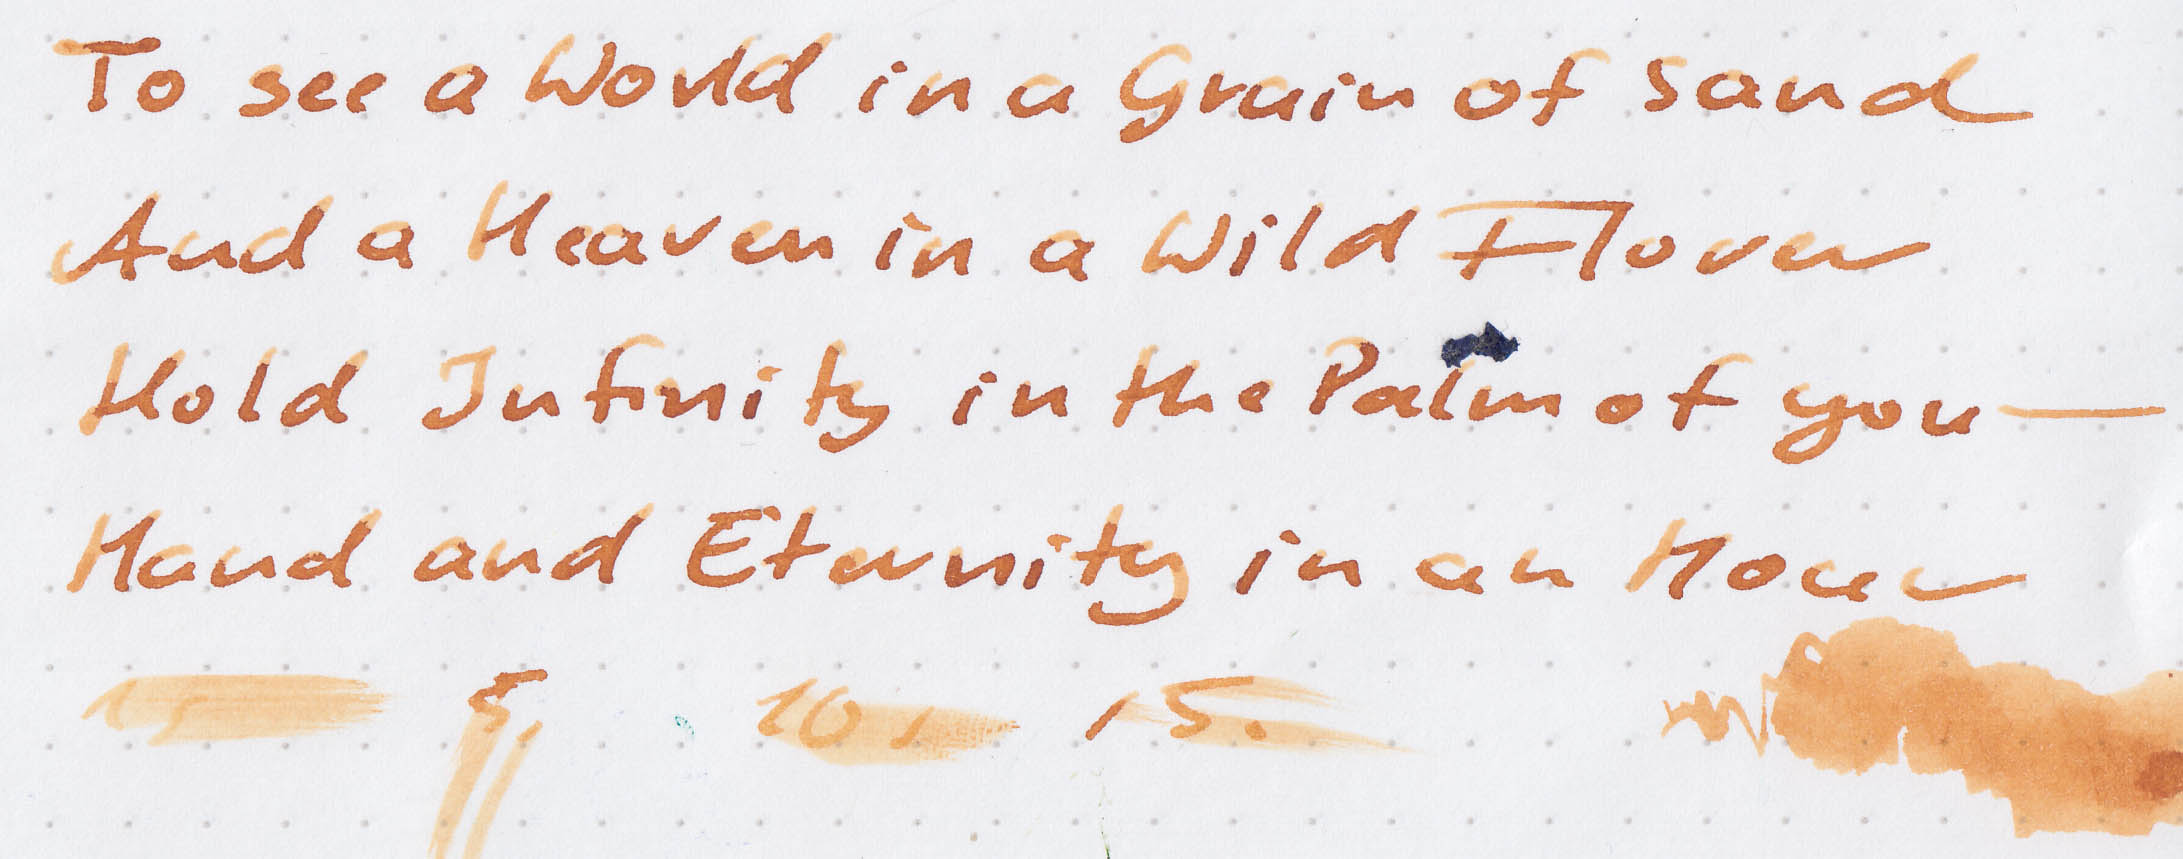 To see a World in a Grain of Sand
And a Heaven in a Wild Flower
Hold Infinity in the Palm of you—
Hand and Eternity in an Hour
15 5, 10, 15.